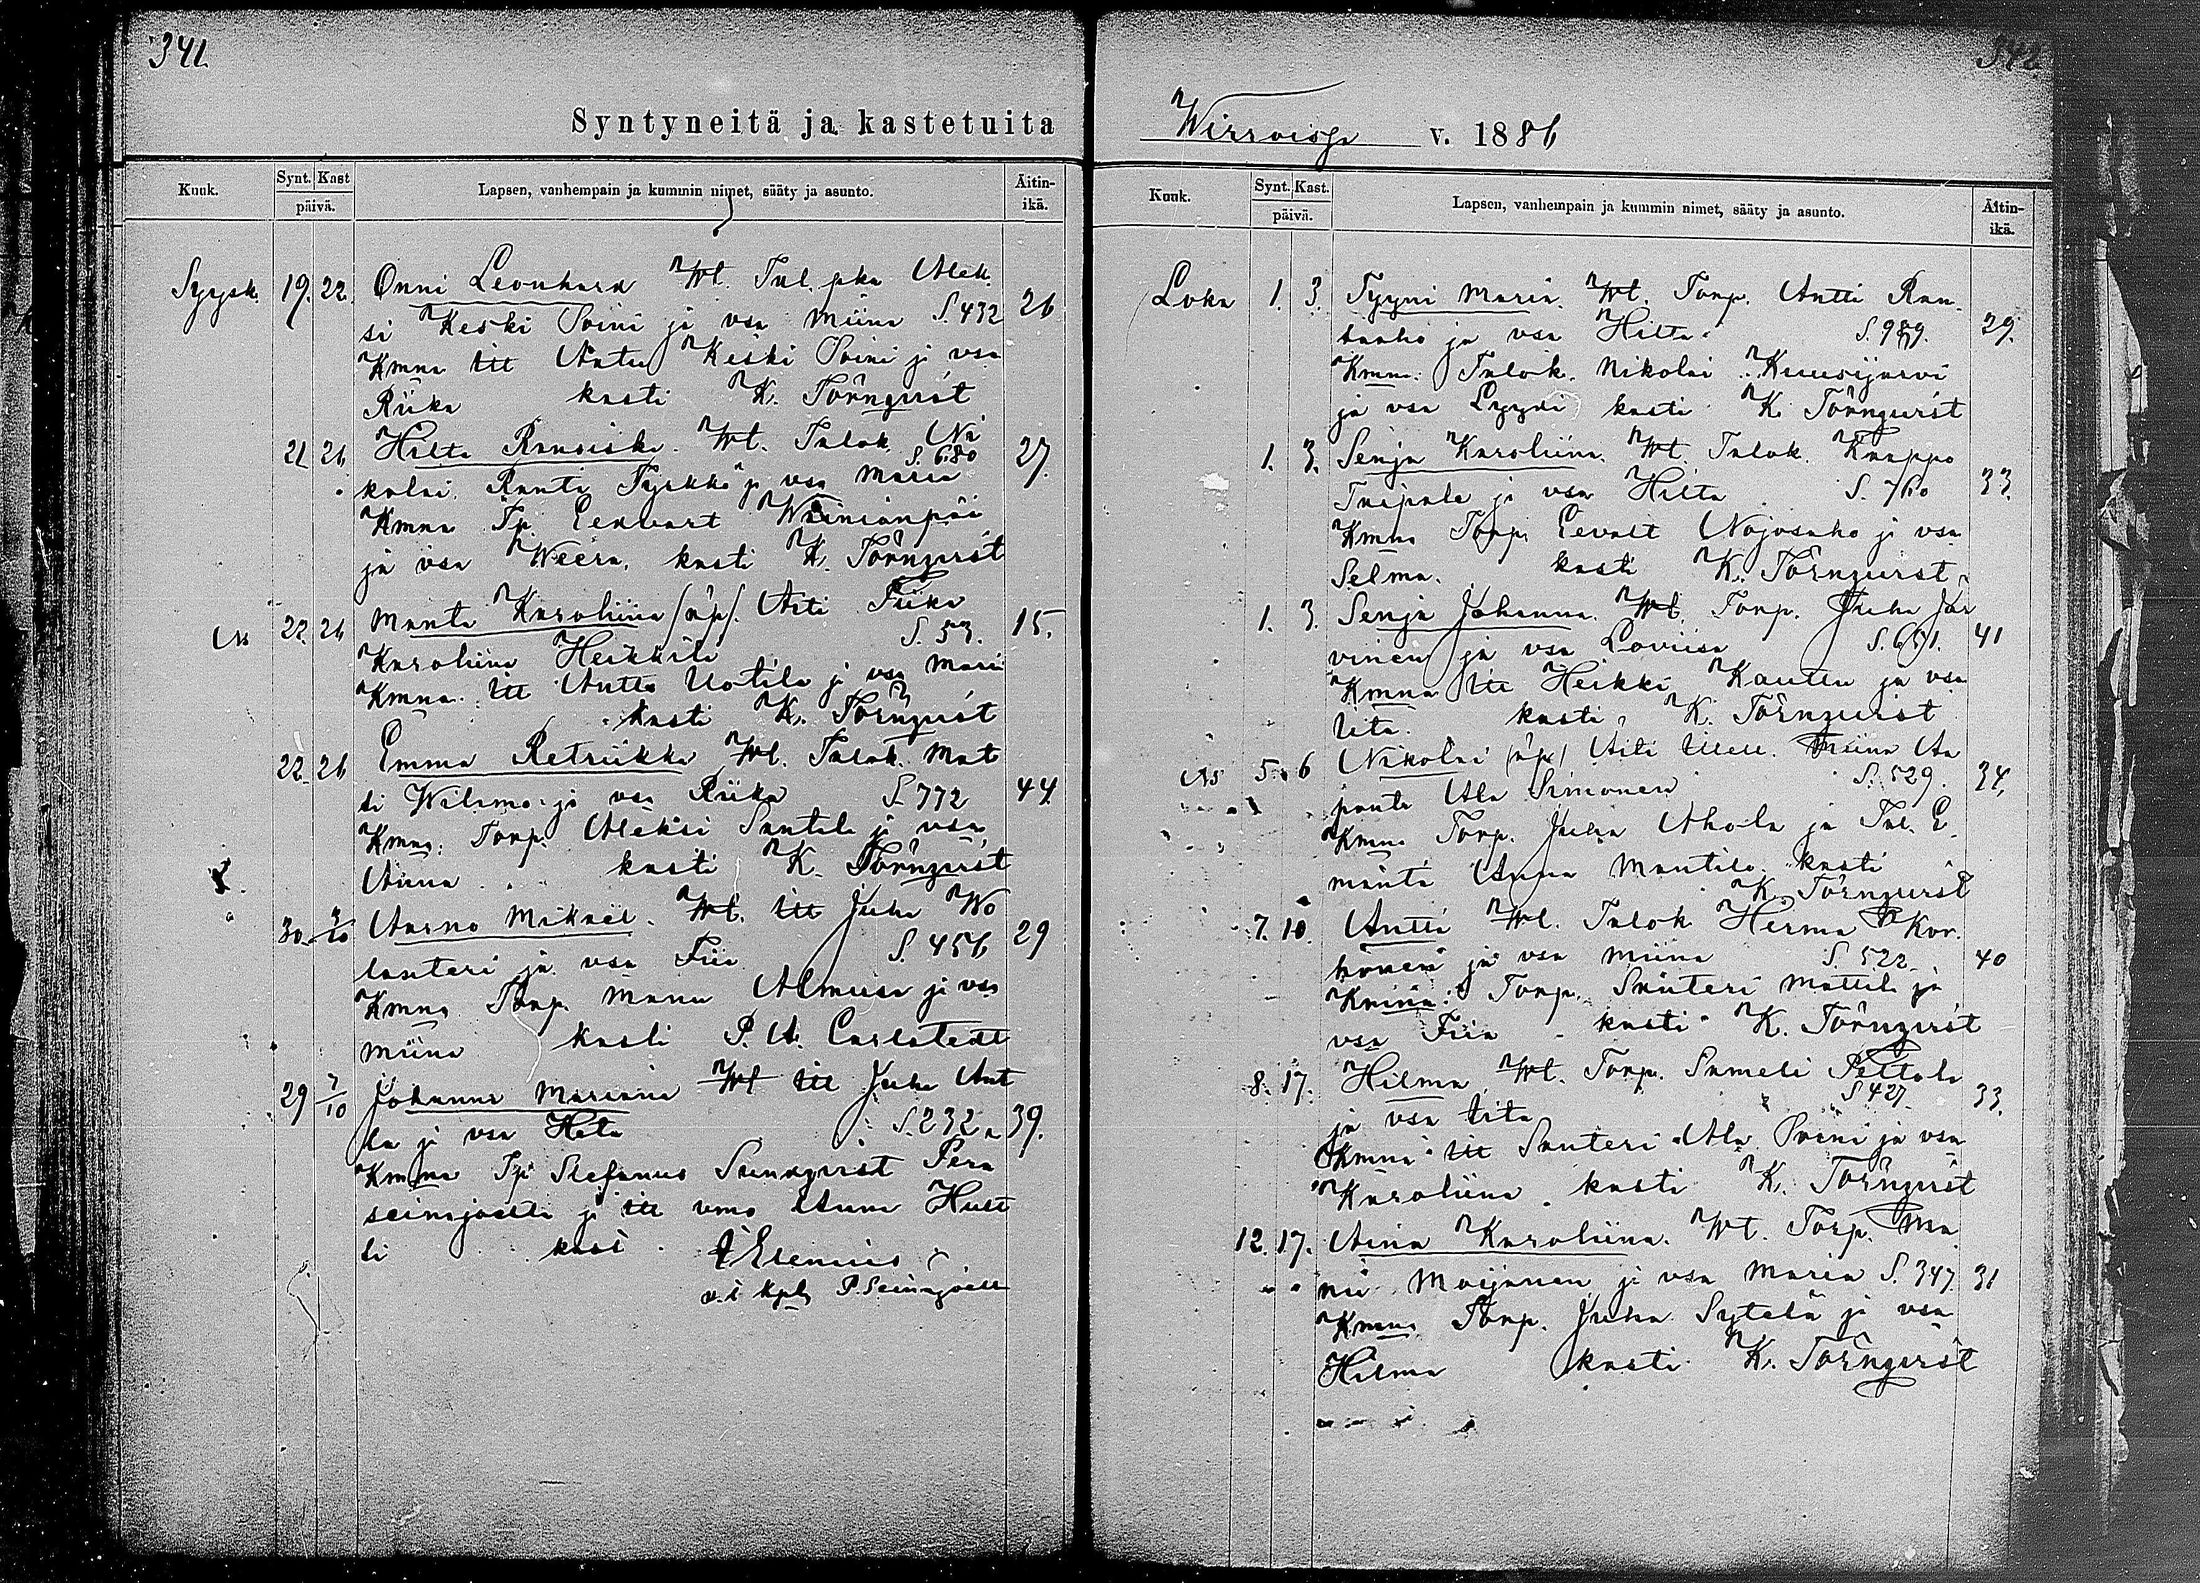 341
Syntyneitä ja kastetuita
Kuuk. Synt. Kast päivä. Lapsen, vanhempain ja kummin nimet, sääty ja asunto. Äitin-ikä.
Syysk. 19. 22. Onni Leonhard Wt. Tal. pka Alek
si Keski Poini ja vsa Miina S. 432 26
Kmna itt Antti Keski Poini ja vsa
Riika kasti K. Törnqvist
21 26 Hilta Ransiska. Wt. Talok. Ni
kolai Ranta Tyrkkö ja vsa Maria S. 680 27.
Kmna Tp. Eedvart Wäinionpää
ja vsa Weera, kasti K. Törnqvist
22. 26 Manta Karoliina (äp). Äiti Fiika
Karoliina Heikkilä S. 53. 15.
Kmna. itt Antti Uotila ja vsa Maria
kasti K. Törnqvist
22. 26 Emma Retriikka Wt. Talok. Mat
ti Wilimo ja vsa Riika S. 772 44.
Kmna: Torp. Aleksi Santala ja vsa
Anna kasti K. Törnqvist
30. 3/10 Aarno Mikael. Wt. itt Juha Wo
lanteri ja vsa Fiia S. 456 29
Kmna Torp. Manu ja vsa
Miina kasti P. A. Carlstedt
29 7/10 Johanna Mariana Wt itt Juha Ant
la ja vsa Heta S. 232 39.
Kmna Tp Stefanus Sundqvist Perä
seinäjoelta ja itt vmo Anna Hult
ti kast Elenius
v. t. kpl. P. Seinäjoella
342
Wirroisja v. 1886
Kuuk. Synt. Kast. päivä. Lapsen, vanhempain ja kummin nimet, sääty ja asunto. Äitin-ikä.
Loka 1. 3. Tyyni Maria. Wt. Torp. Antti Ran
taaho ja vsa Hilta S. 989. 29.
Kmna: Talok. Nikolai Kuusijärvi
ja vsa Lyydi kasti K. Törnqvist
1. 3. Senja Karoliina. Wt. Talok. Kaappo
Taipale ja vsa Hilta S. 760 33.
Kmna Torp. Eevalt Nojosaho ja vsa
Selma. kasti K. Törnqvist
1. 3. Senja Johanna. Wt. Torp. Juha Jär
vinen ja vsa Loviisa S. 691. 41
Kmna itt Heikki Kauttu ja vsa
Iita. kasti K. Törnqvist
5. 6 Nikolai (äp) Äiti Miina Aa
panta Ala Simonen S. 529. 34.
Kmna Torp. Juha Ahola ja Tal. E
mäntä Anna Mantila. kasti
K. Törnqvist
7. 10. Antti Wt. Talok Herma Kor
hönen ja vsa Miina S. 522. 40
Kmna: Torp. Santeri Mattila ja
vsa Fiia kasti K. Törnqvist
8. 17. Hilma Wt. Torp. Sameli Peltola
ja vsa Iita S 427. 33.
Kmna itt Santeri Ala Poini ja vsa
Karoliina kasti K. Törnqvist
12. 17. Aina Karoliina. Wt. Torp. Ma
nu Moijanen ja vsa Maria S. 347. 31
Kmna Torp. Juha Sytelä ja vsa
Hilma kasti K. Törnqvist